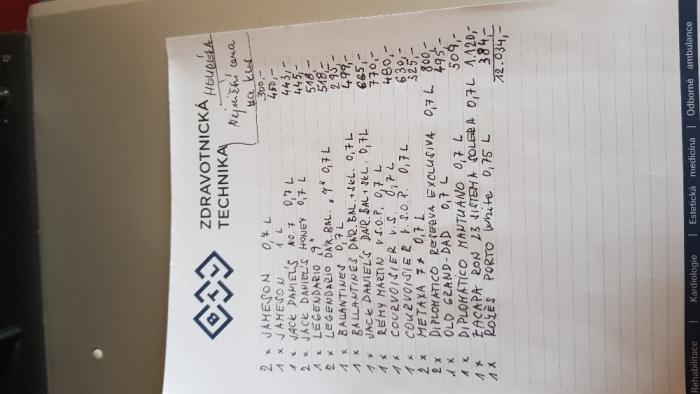 ZDRAVOTNICKÁ
TECHNIKA
HEUREKA
Nejnižší cena
za kus
2 x JAMESON 0,7 L 300,-
1 x JAMESON 1 L 450,-
1 x JACK DANIEL'S NO.7 0,7 L 443,-
2 x JACK DANIEL'S HONEY 0,7 L 445,-
1 x LEGENDARIO "9" 518,-
2 x LEGENDARIO DAR. BAL. "9" 0,7 L 518,-
1 x BALLANTINES 0,7 L 295,-
1 x BALLANTINES DAR. BAL. + SKL. 0,7 L 499,-
1 x JACK DANIEL'S DAR. BAL + SKL. 0,7 L 665,-
1 x REMY MARTIN V.S.O.P. 0,7 L 770,-
1 x COURVOISIER V.S. 0,7 L 480,-
1 x COURVOISIER V.S.O.P. 0,7 L 630,-
2 x METAXA 7* 0,7 L 325,-
2 x DIPLOMATICO RESERVA EXCLUSIVA 0,7 L 800,-
1 x OLD GRAND-DAD 0,7 L 495,-
1 x DIPLOMATICO MANTUANO 0,7 L 509,-
1 x ZACAPA RON 23 SISTEMA SOLERA 0,7 L 1.120,-
1 x ROZÈS PORTO White 0,75 L 384,-
12.034,-
Rehabilitace | Kardiologie | Estetická medicína | Odborné ambulance